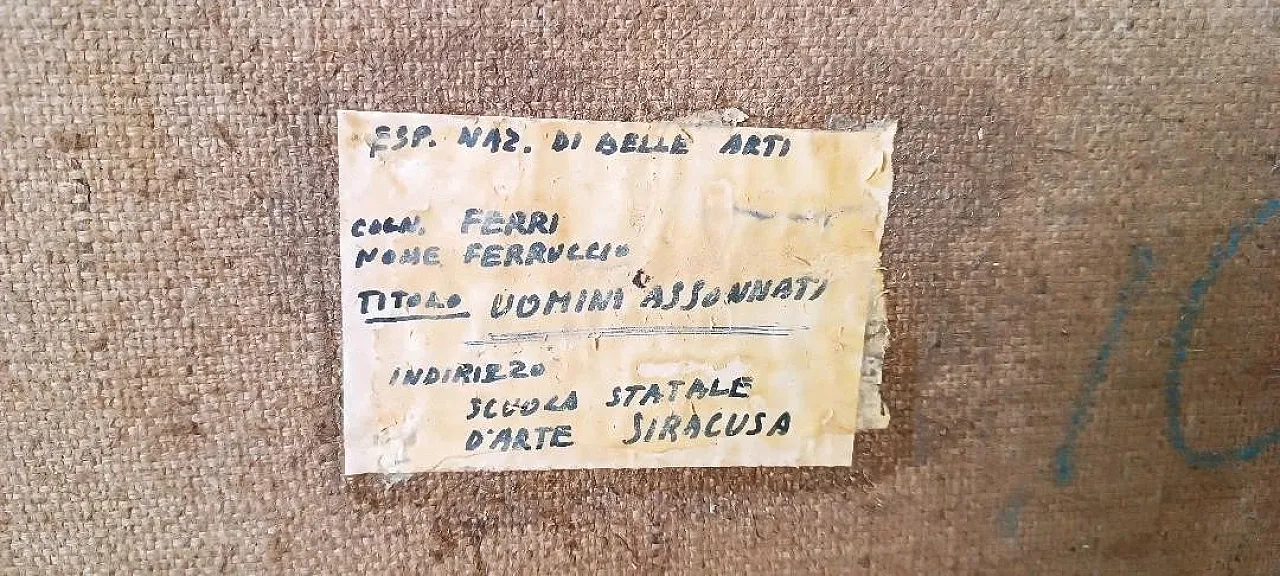 ESP. NAZ. DI BELLE ARTI
COGN. FERRI
NOME FERRUCCIO
TITOLO UOMINI ASSONNATI
INDIRIZZO
SCUOLA STATALE
D'ARTE SIRACUSA
10